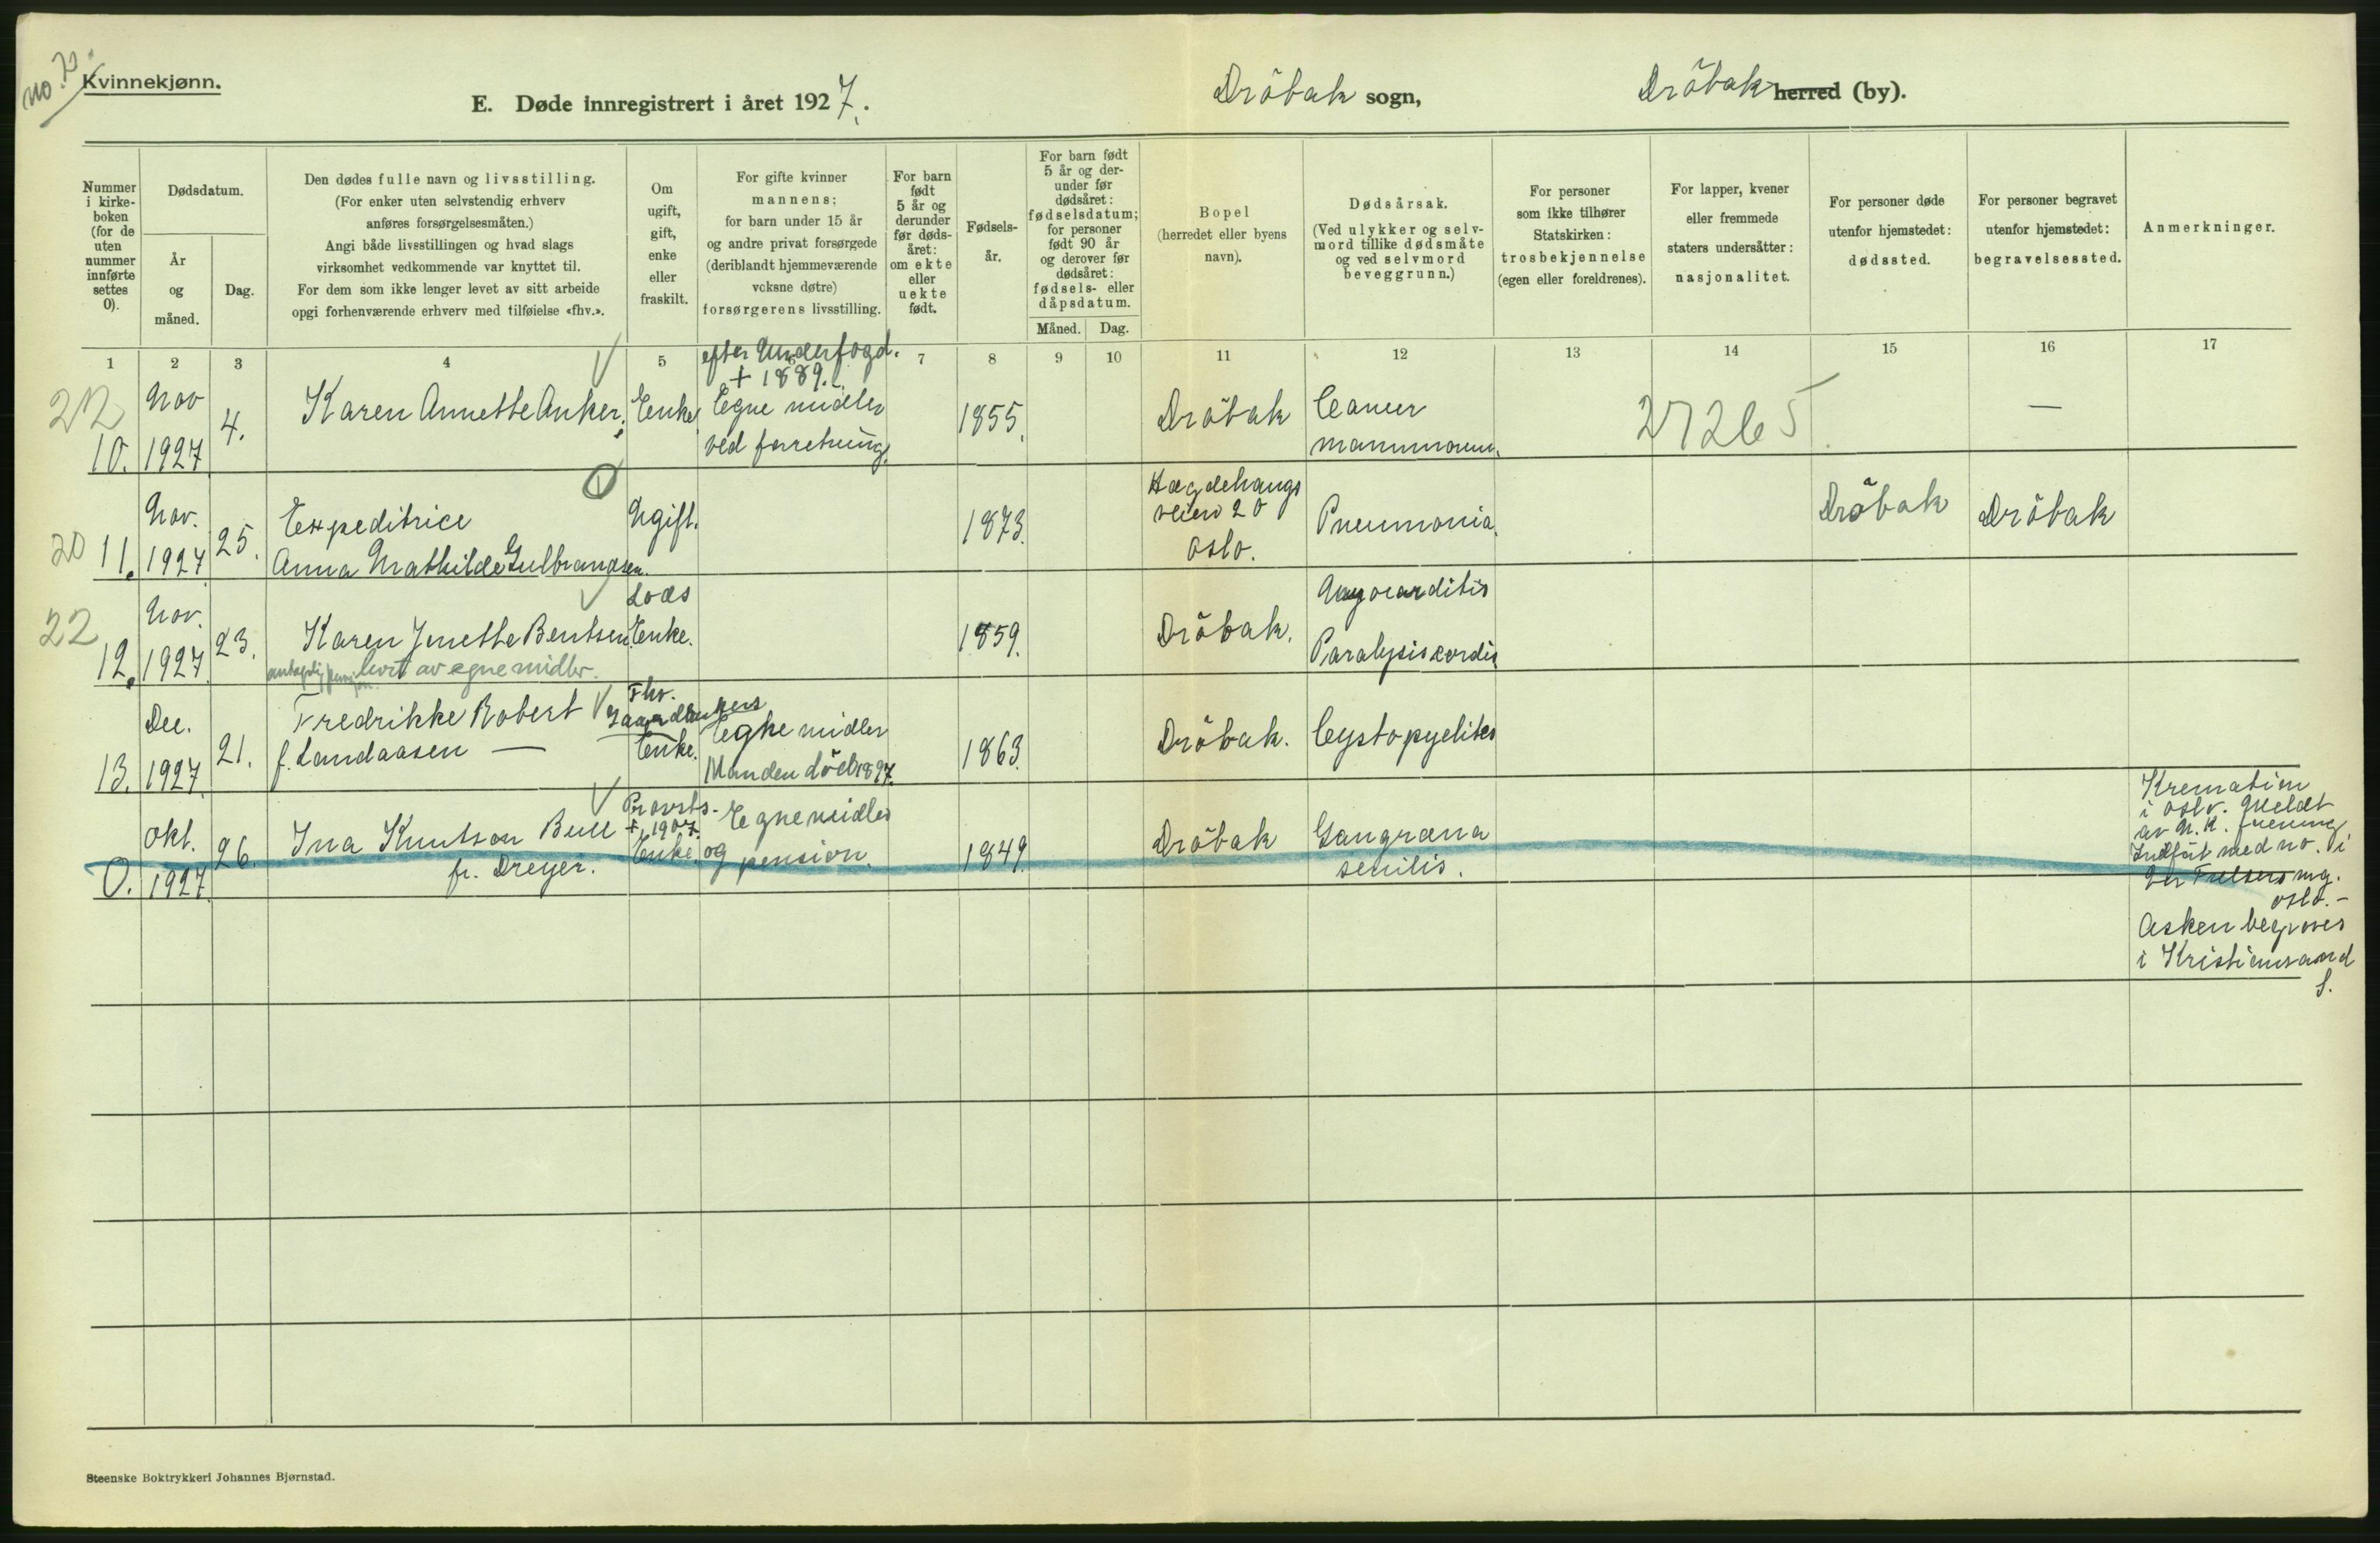 no. 70.
Kvinnekjønn.
E. Døde innregistrert i året 1927.
Dröbak sogn,
Dröbak herred (by).
Nummer
i kirke-
boken
(for de
uten
nummer
innførte
settes
0).
Dødsdatum.
År
og
måned.
Dag.
Den dødes fulle navn og livsstilling.
(For enker uten selvstendig erhverv
anføres forsørgelsesmåten.)
Angi både livsstillingen og hvad slags
virksomhet vedkommende var knyttet til.
For dem som ikke lenger levet av sitt arbeide
opgi forhenværende erhverv med tilføielse «fhv.».
Om
ugift,
gift,
enke
eller
fraskilt.
For gifte kvinner
mannens;
for barn under 15 år
og andre privat forsørgede
(deriblandt hjemmeværende
voksne døtre)
forsørgerens livsstilling.
For barn
født
5 år og
derunder
før døds-
året:
om ekte
eller
uekte
født.
Fødsels-
år.
For barn født
5 år og der-
under før
dødsåret:
fødselsdatum;
for personer
født 90 år
og derover før
dødsåret:
fødsels- eller
dåpsdatum.
Måned. Dag.
Bopel
(herredet eller byens
navn).
Dødsårsak.
(Ved ulykker og selv-
mord tillike dødsmåte
og ved selvmord
beveggrunn.)
For personer
som ikke tilhører
Statskirken:
trosbekjennelse
(egen eller foreldrenes).
For lapper, kvener
eller fremmede
staters undersåtter:
nasjonalitet.
For personer døde
utenfor hjemstedet:
dødssted.
For personer begravet
utenfor hjemstedet:
begravelsessted.
Anmerkninger.
1 2 3 4 5 6 7 8 9 10 11 12 13 14 15 16 17
efter Underfogd.
+ 1889.
22
10. Nov 1927 4. Karen Annette Anker. Enke Egne midler
ved forretning. 1855. Dröbak Cancer
mammarum. 27265 —
20
11. Nov. 1927 25. Expeditrice
Anna Mathilde Gulbrandsen. Ugift. 1873. Hægdehaugs
veien 20
Oslo. Pneumonia. Dröbak Dröbak
22
12. Nov. 1927 23. Karen Jenette Bentsen. Lods
Enke. 1859. Dröbak. Myocarditis
Paralysis cordis
levet av egne midler.
13. Dec. 1927 21. Fredrikke Robert
f. Landaasen — Fhv.
Enke. Egne midler
Manden död 1897. 1863. Dröbak. Cystopyelites
0. Okt. 1927 26. Ina Knutson Bull
f. Dreyer. Provsts-
+ 1907.
Enke. Egne midler
og pension. 1849. Dröbak Gangræna
senilis.
Kremation
i Oslo. Meldt
av
Indfört med no. 0 i
Vor Frelsers mg.
Oslo. —
Asken begraves
i Kristiansand
S.
Steenske Boktrykkeri Johannes Bjørnstad.